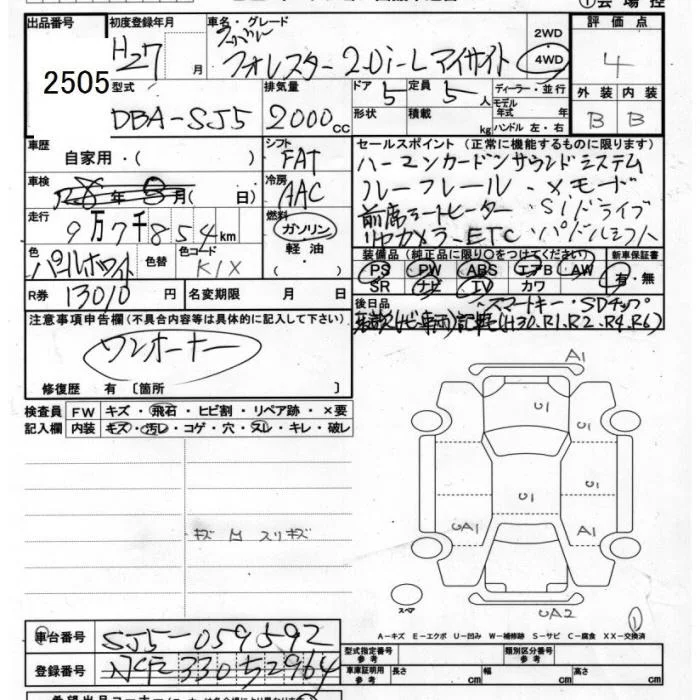 ①会場控
出品番号
2505
初度登録年月
H27 月
車名・グレード
スバル
フォレスター 2.0i-L アイサイト
2WD
4WD
評価点
4
外装 内装
B B
型式
DBA-SJ5
排気量
2000cc
ドア 5
定員 5 人
形状
積載 kg
ディーラー・並行
モデル年式 年
ハンドル 左・右
車歴
自家用・( )
シフト
FAT
車検
年 月( 日)
冷房
AAC
走行
9万7千854km
燃料
ガソリン
軽油
( )
色
パールホワイト
色替
色コード
K1X
R券 13010 円
名変期限 月 日
セールスポイント (正常に機能するものに限ります)
ハーマンカードンサウンドシステム
ルーフレール・Xモード
前席シートヒーター・SIドライブ
リヤカメラ・ETC・パドルシフト
装備品(純正品に限り○をつけてください) 新車保証書
PS PW ABS エアB AW
SR ナビ TV カワ
有・無
後日品
・スマートキー・SDチップ
取説(ナビ・車両)記簿(H30.R1.R2.R4.R6)
注意事項申告欄(不具合内容等は具体的に記入して下さい)
ワンオーナー
修復歴 有〔箇所 〕
検査員記入欄
FW キズ・飛石・ヒビ割・リペア跡・×要
内装 キズ・汚レ・コゲ・穴・スレ・キレ・破レ
キズ 凹 スリキズ
A1
U1
U1
U1
UA1
A1
スペア
UA2
①
A-キズ E-エクボ U-凹み W-補修跡 S-サビ C-腐食 XX-交換済
車台番号 SJ5-059592
登録番号
型式指定番号 参考
類別区分番号 参考
車庫証明用 参考
長さ cm 幅 cm 高さ cm